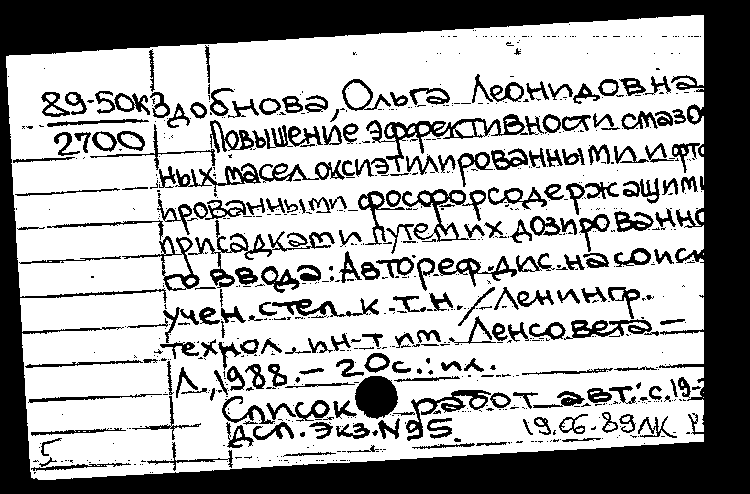 89-50к Здобнова, Ольга Леонидовна
2700 Повышение эффективности смазо
ных масел оксиэтилированными и фто
ированными фосфорсодержащими
присадками путем их дозированно
го ввода: Автореф. дис. на соиск
учен. степ. к.т.н. / Ленингр.
технол. ин-т им. Ленсовета. —
Л., 1988. — 20с.: ил.
Список работ авт.: с. 19-2
ДСП. Экз. N95. 19.06-89 ЛК
5